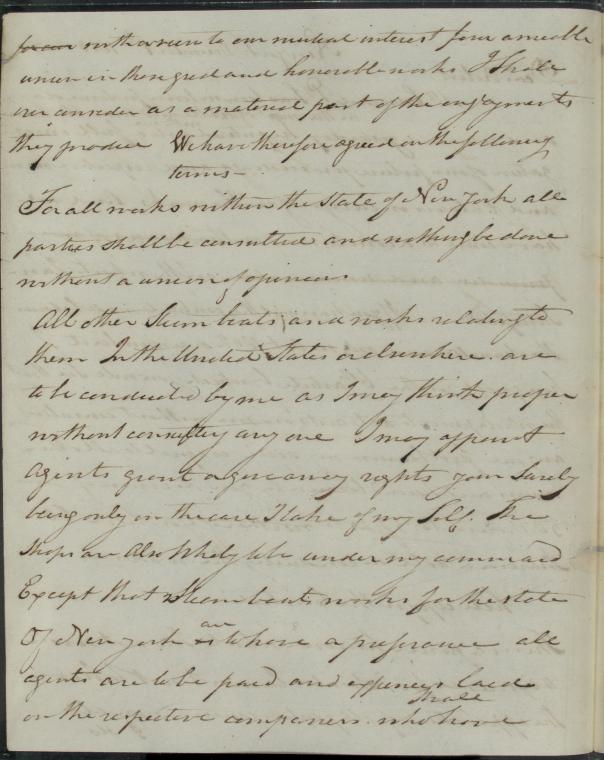 with a view to our mutual interest for a amiable
union in these great and honorable works I shall
ever consider as a material part of the enjoyments
they produce We have therefore agreed on the following
terms —
For all works within the State of New York all
parties shall be consulted and nothing be done
without a union of opinion.
All other Steam boats and works relating to
them In the United States or elsewhere are
to be conducted by me as I may think proper
without consulting any one I may appoint
agents grant or give away rights your Surety
being only in the care I take of my Self. The
Shops are Also Wholy to be under my command
Except that Steam boats works for the state
Of New York are to have a preferance all
agents are to be paid and expences laid
on the respective companies who shall have